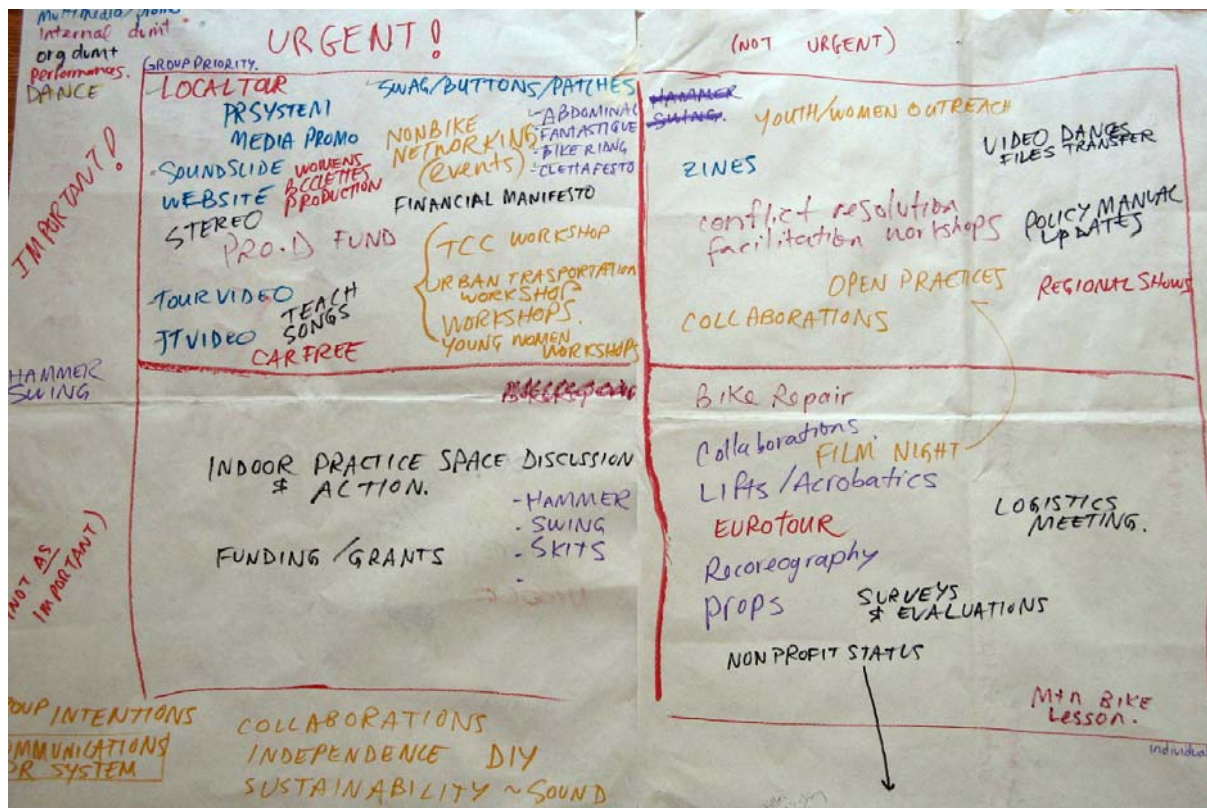 Internal dumt
org dumt
Performances.
DANCE
URGENT!
GROUP PRIORITY.
IMPORTANT!
LOCAL TOUR
PR SYSTEM
MEDIA PROMO
SOUNDSLIDE
WEBSITE
STEREO
WOMENS
PRODUCTION
PRO.D FUND
TOUR VIDEO
JT VIDEO
TEACH
SONGS
CAR FREE
SWAG/BUTTONS/PATCHES
-ABDOMINAL
-FANTASTIQUE
-BIKE RIDNG
-CLETTAFESTO
NONBIKE
NETWORKING
(events)
FINANCIAL MANIFESTO
TCC WORKSHOP
URBAN TRASPORTATION
WORKSHOP
WORKSHOPS.
YOUNG WOMEN
WORKSHOPS
(NOT URGENT)
HAMMER
SWING.
YOUTH/WOMEN OUTREACH
VIDEO DANCES
FILES TRANSFER
ZINES
conflict resolution
facilitation workshops
POLICY MANUAL
UPDATES
OPEN PRACTICES
REGIONAL SHOWS
COLLABORATIONS
HAMMER
SWING
(NOT AS
IMPORTANT)
Bike Repair
INDOOR PRACTICE SPACE DISCUSSION
& ACTION.
-HAMMER
- SWING
- SKITS
-
FUNDING/GRANTS
Bike Repair
Collaborations.
FILM NIGHT
Lifts/Acrobatics
EUROTOUR
Recoreography
props
LOGISTICS
MEETING.
SURVEYS
& EVALUATIONS
NON PROFIT STATUS
Mtn BIKE
Lesson.
individual
OUP INTENTIONS
MMUNICATIONS
OR SYSTEM
COLLABORATIONS
INDEPENDENCE DIY
SUSTAINABILITY ~ SOUND